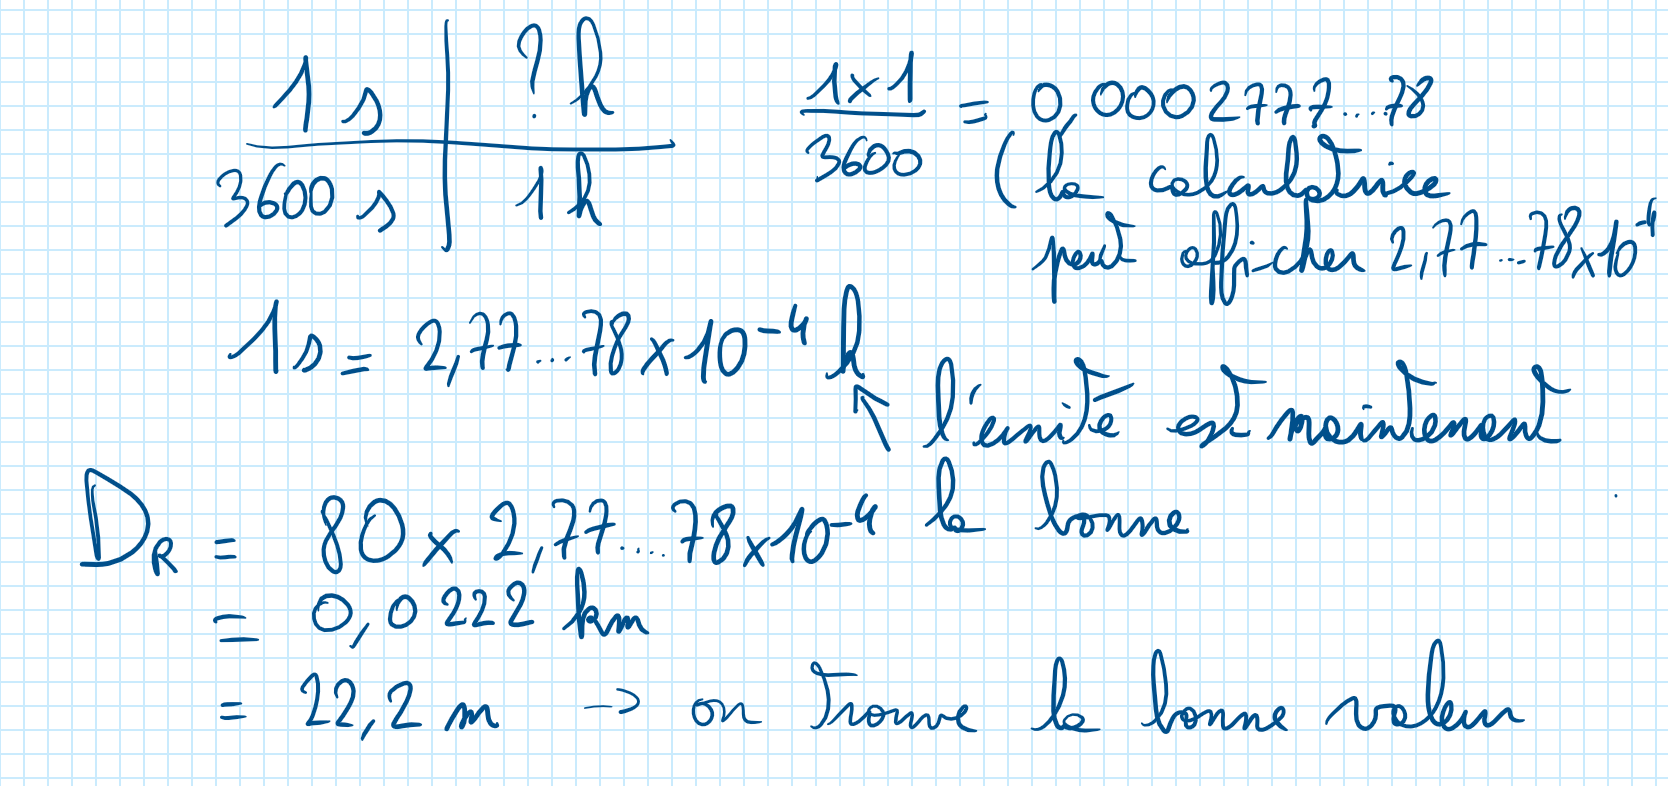 1 s | ? h
3600 s | 1 h
1 x 1 / 3600 = 0,0002777...78
(la calculatrice
peut afficher 2,77...78 x 10⁻⁴
1 s = 2,77...78 x 10⁻⁴ h
↖ l'unité est maintenant
la bonne
D_R = 80 x 2,77....78 x 10⁻⁴
= 0,0222 km
= 22,2 m → on trouve la bonne valeur